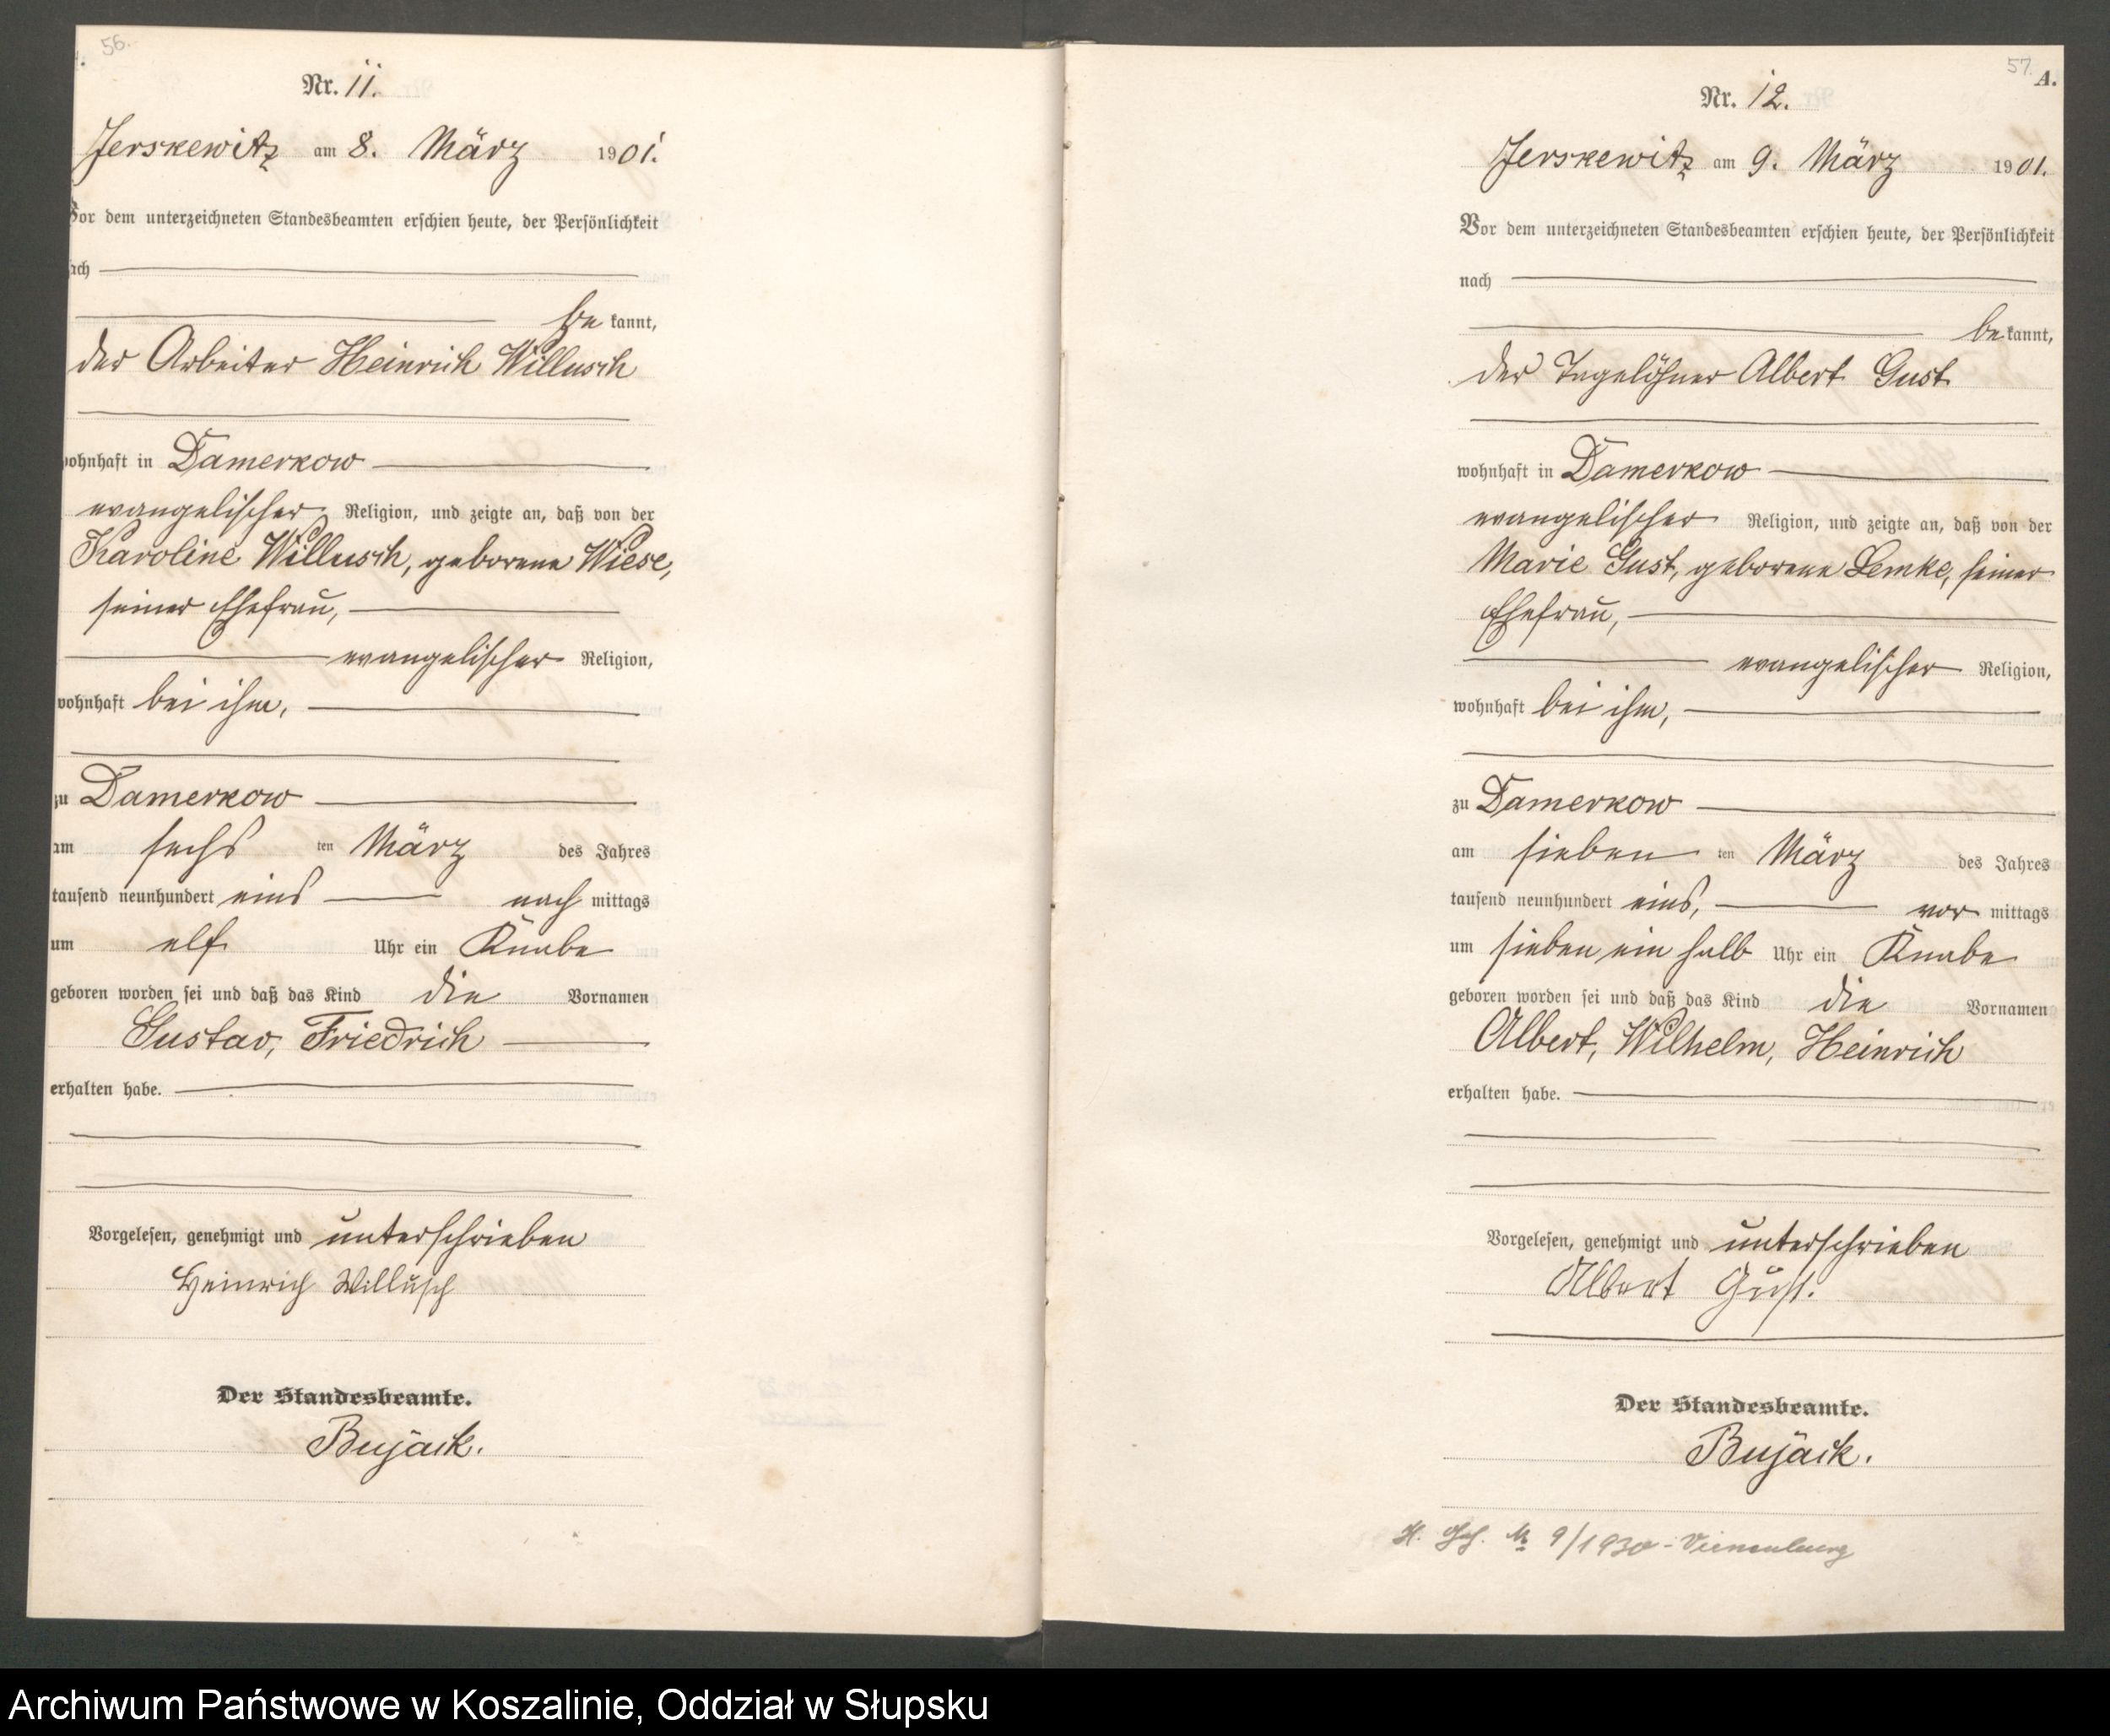 56.
Nr. 11.
Jerskewitz am 8. März 1901.
Vor dem unterzeichneten Standesbeamten erschien heute, der Persönlichkeit
nach
be kannt,
der Arbeiter Heinrich Willusch
wohnhaft in Damerkow
evangelischer Religion, und zeigte an, daß von der
Karoline Willusch, geborene Wiese,
seiner Ehefrau,
evangelischer Religion,
wohnhaft bei ihm,
zu Damerkow
am sechs ten März des Jahres
tausend neunhundert eins nach mittags
um elf Uhr ein Knabe
geboren worden sei und daß das Kind die Vornamen
Gustav, Friedrich
erhalten habe.
Vorgelesen, genehmigt und unterschrieben
Heinrich Willusch
Der Standesbeamte.
Bujack.
57.
A.
Nr. 12.
Jerskewitz am 9. März 1901.
Vor dem unterzeichneten Standesbeamten erschien heute, der Persönlichkeit
nach
be kannt,
der Tagelöhner Albert Gust
wohnhaft in Damerkow
evangelischer Religion, und zeigte an, daß von der
Marie Gust, geborene Lemke, seiner
Ehefrau,
evangelischer Religion,
wohnhaft bei ihm,
zu Damerkow
am sieben ten März des Jahres
tausend neunhundert eins, vor mittags
um sieben ein halb Uhr ein Knabe
geboren worden sei und daß das Kind die Vornamen
Albert, Wilhelm, Heinrich
erhalten habe.
Vorgelesen, genehmigt und unterschrieben
Albert Gust.
Der Standesbeamte.
Bujack.
H. № 9/1930 - Vienenburg
Archiwum Państwowe w Koszalinie, Oddział w Słupsku